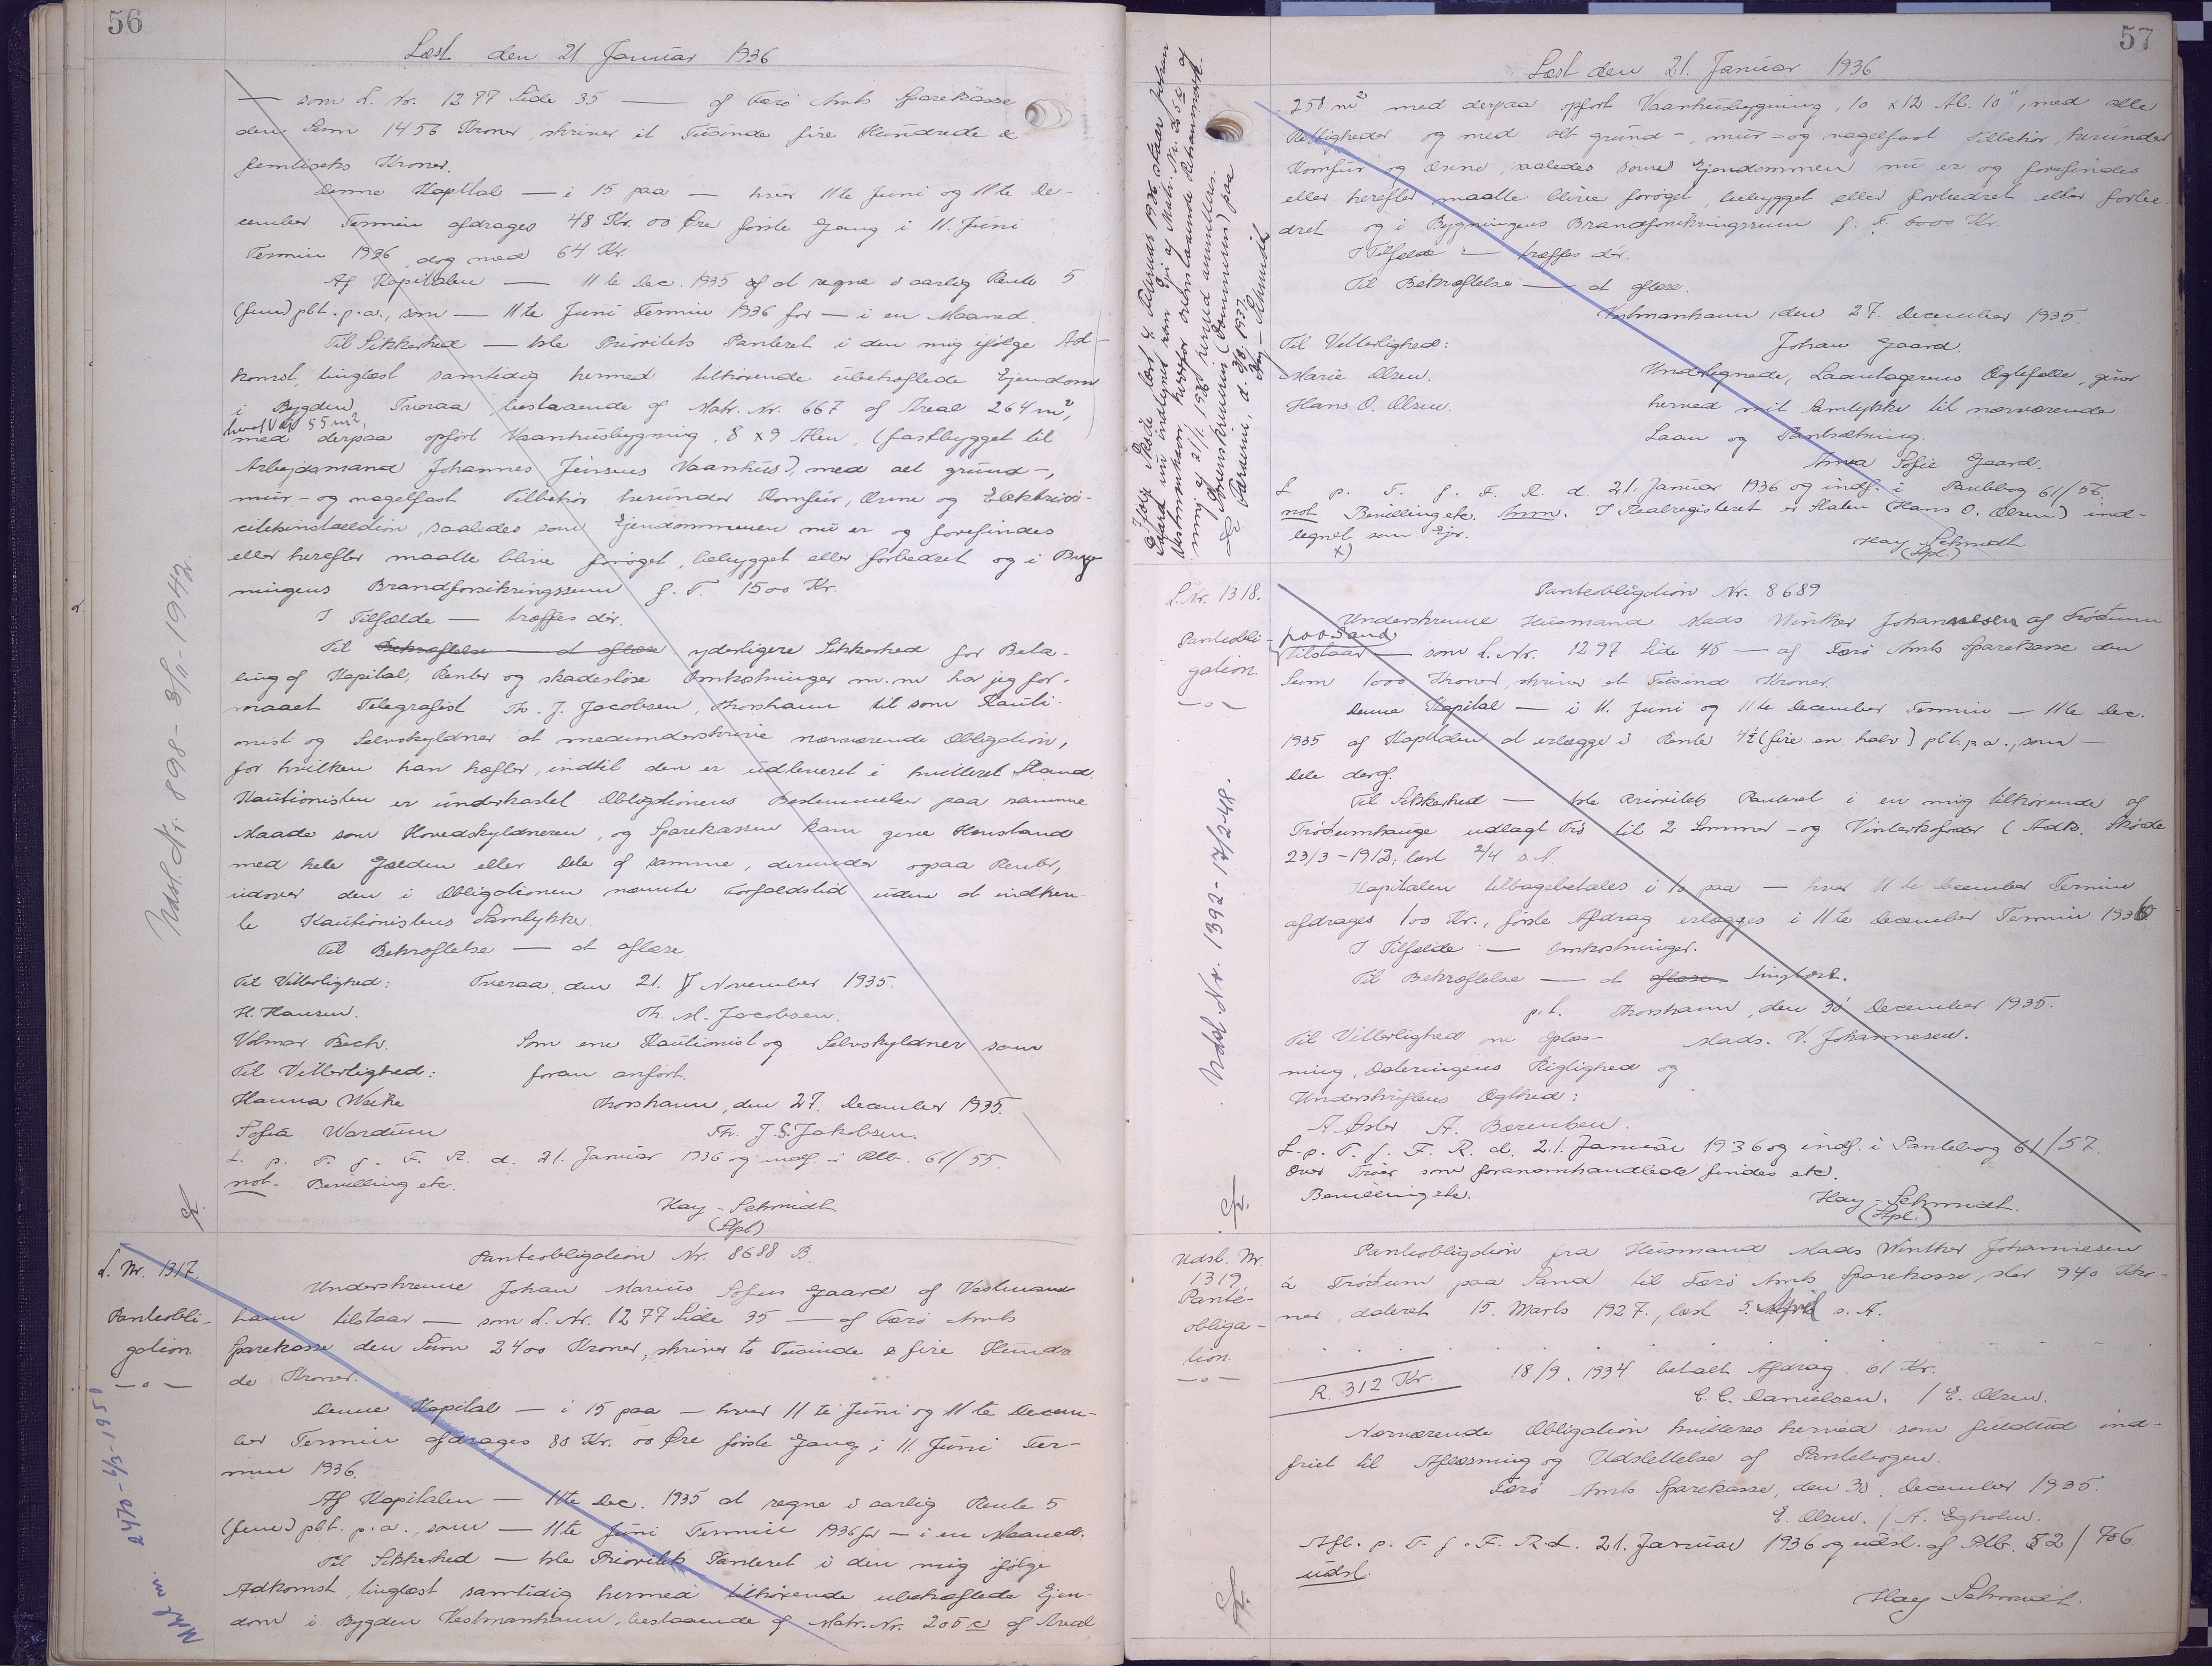 56
Læst den 21. Januar 1936
— som L. Nr. 1277 Side 35 — af Færø Amts Sparekasse
den Sum 1456 Kroner, skriver et Tusinde fire Hundrede &
femtiseks Kroner.
Denne Kapital — i 15 paa — hver 11te Juni og 11te De-
cember Termin afdrages 48 Kr. 00 Øre første Gang i 11. Juni
Termin 1936, dog med 64 Kr.
Af Kapitalen — 11te Dec. 1935 af at regne i aarlig Rente 5
(fem) pCt. p.a., som — 11te Juni Termin 1936 for — i en Maaned.
Til Sikkerhed — 1ste Prioritets Panteret i den mig ifølge Ad-
komst, tinglæst samtidig hermed tilhørende ubehæftede Ejendom
i Bygden Tveraa, bestaaende af Matr. Nr. 667 af Areal 264 m²,
hvoraf Vej 55 m²,
med derpaa opført Vaanhusbygning, 8 x 9 Alen, (fastbygget til
Arbejdsmand Johannes Jensens Vaanhus), med alt grund-,
mur- og nagelfast Tilbehør herunder Komfur, Ovne og Elektrici-
citetsinstallation, saaledes som Ejendommen nu er og forefindes
eller herefter maatte blive forøget, bebygget eller forbedret og i Byg
ningens Brandforsikringssum f. T. 1500 Kr.
I Tilfælde — træffes dér.
Til Bekræftelse — at aflæse yderligere Sikkerhed for Beta-
ling af Kapital, Renter og skadesløse Omkostninger m.m. har jeg for-
maaet Telegrafist Th. J. Jacobsen, Thorshavn til som Kauti-
onist og Selvskyldner at medunderskrive nærværende Obligation,
for hvilken han hæfter, indtil den er udleveret i kvitteret Stand.
Kautionisten er underkastet Obligationens Bestemmelser paa samme
Maade som Hovedskyldneren, og Sparekassen kan give Henstand
med hele Gælden eller Dele af samme, derunder ogsaa Renter,
udover den i Obligationen nævnte Forfaldstid uden at indhen-
te Kautionistens Samtykke.
Til Bekræftelse — at aflæse.
Til Vitterlighed: Tveraa, den 21. November 1935.
H. Hansen. Th. M. Jacobsen.
Volmar Bech. Som ene Kautionist og Selvskyldner som
Til Vitterlighed: foran anført.
Hanna Weihe Thorshavn, den 27. December 1935.
Sofía Wardum Th. J. S. Jakobsen.
L. p. T. f. F. R. d. 21. Januar 1936 og indf. i Ptb. 61/55.
not. Bevilling etc.
Hay-Schmidt
(Stpl)
Udsl. Nr. 898 - 3/11-1942.
L. Nr. 1317.
Pantobli-
gation
—o—
2470 - 6/3-1951
Panteobligation Nr. 8688 B.
Underskrevne Johan Marius Sofus Gaard af Vestmann
havn tilstaar — som L. Nr. 1277 Side 35 — af Færø Amts
Sparekasse den Sum 2400 Kroner, skriver to Tusinde & fire Hundre
de Kroner.
Denne Kapital — i 15 paa — hver 11te Juni og 11te Decem-
ber Termin afdrages 80 Kr. 00 Øre første Gang i 11. Juni Ter-
min 1936.
Af Kapitalen — 11te Dec. 1935 at regne i aarlig Rente 5
(fem) pCt. p.a., som — 11te Juni Termin 1936 for — i en Maaned.
Til Sikkerhed — 1ste Prioritets Panteret i den mig ifølge
Adkomst, tinglæst samtidig hermed tilhørende ubehæftede Ejen-
dom i Bygden Vestmanhavn, bestaaende af Matr. Nr. 205c af Areal
57
Læst den 21. Januar 1936
258 m² med derpaa opført Vaanhusbygning, 10 x 12 Al. 10", med alle
Rettigheder og med alt grund-, mur- og nagelfast Tilbehør, herunder
Komfur og Ovne, saaledes som Ejendommen nu er og forefindes
eller herefter maatte blive forøget, bebygget eller forbedret eller forbe
dret og i Bygningens Brandforsikringssum f. T. 6000 Kr.
I Tilfælde — træffes dér.
Til Bekræftelse — at aflæse.
Vestmanhavn, den 27. December 1935.
Til Vitterlighed: Johan Gaard.
Marie Olsen. Undertegnede, Laantagerens Ægtefælle, giver
Hans O. Olsen. herved mit Samtykke til nærværende
Laan og Pantsætning.
Anna Sofie Gaard.
L. p. T. f. F. R. d. 21. Januar 1936 og indf. i Pantebog 61/56.
not Bevilling etc. Anm. I Realregisteret er Staten (Hans O. Olsen) ind-
tegnet som Ejer.
x)
Hay Schmidt
(Stpl)
x) Ifølge Skøde læst 4. Februar 1936 staar Johan
Gaard nu indtegnet som Ejer af Matr. Nr. 205c af
Vestmanhavn, hvorfor ovenstaaende Retsanmærk-
ning af 21/1. 1936 herved annulleres.
Sorenskriveren (Dommeren) paa
Færøerne, d. 3/3. 1937.
Hay-Schmidt
L. Nr. 1318.
Panteobli-
gation.
—o—
Udsl. Nr. 1392 - 17/2-48.
Panteobligation Nr. 8689
Underskrevne Husmand Mads Winther Johannesen af Tródum
paa Sand
tilstaar — som L. Nr. 1297 Side 45 — af Færø Amts Sparekasse den
Sum 1000 Kroner, skriver et Tusind Kroner.
Denne Kapital — i 11. Juni og 11te December Termin — 11te Dec.
1935 af Kapitalen at erlægge i Rente 4½ (fire en halv) pCt. p.a., som —
Dele deraf.
Til Sikkerhed — 1ste Prioritets Panteret i en mig tilhørende af
Tródumhauge udlagt Trø til 2 Sommer- og Vinterkofoder (Adk. Skøde
23/3-1912, læst 2/4 s. A.
Kapitalen tilbagebetales i 10 paa — hver 11te December Termin
afdrages 100 Kr., første Afdrag erlægges i 11te December Termin 1936
I Tilfælde — Omkostninger.
Til Bekræftelse — at aflæse tinglæst.
p.t. Thorshavn, den 30 December 1935.
Til Vitterlighed om Oplæs- Mads. V. Johannesen.
ning, Dateringens Rigtighed og
Underskriftens Ægthed:
A Øster A. Berentsen.
L. p. T. f. F. R. d. 21. Januar 1936 og indf. i Pantebog 61/57.
Over Trøer som foranomhandlede findes etc.
Bevilling etc.
Hay-Schmidt.
(Stpl.)
Udsl. Nr.
1319.
Pante-
obliga-
tion.
—o—
Panteobligation fra Husmand Mads Winther Johannesen
á Tródum paa Sand til Færø Amts Sparekasse, stor 940 Kro-
ner, dateret 15. Marts 1927., læst 5. April s. A.
R. 312 Kr. 18/9. 1934 betalt Afdrag 61 Kr.
C. C. Danielsen. / E. Olsen.
Nærværende Obligation kvitteres herved som fuldtud ind-
friet til Aflæsning og Udslettelse af Pantebogen.
Færø Amts Sparekasse, den 30. December 1935.
E. Olsen. / A. Egholm.
Afl. p. T. f. F. R. d. 21. Januar 1936 og udsl. af Ptb. 52/706
udsl.
Hay Schmidt.